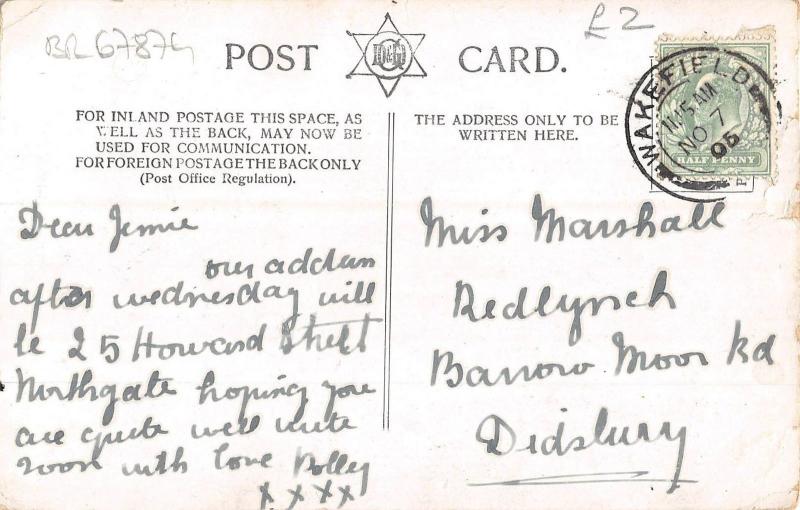 BR 67874
£2
POST CARD.
D&G
FOR INLAND POSTAGE THIS SPACE, AS
WELL AS THE BACK, MAY NOW BE
USED FOR COMMUNICATION.
FOR FOREIGN POSTAGE THE BACK ONLY
(Post Office Regulation).
THE ADDRESS ONLY TO BE
WRITTEN HERE.
WAKEFIELD
11.15 AM
NO 7
HALF PENNY
Dear Jennie
our address
after wednesday will
be 25 Howard Street
Northgate hoping you
are quite well write
soon with love Polley
xxxx
Miss Marshall
Redlynch
Barrow Moor Rd
Didsbury